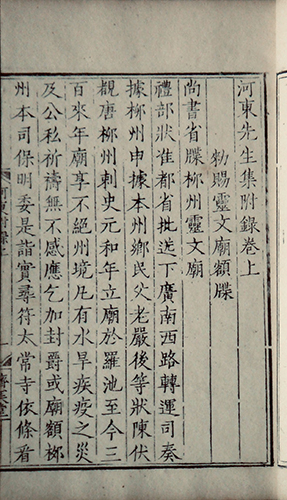 河東先生集附錄卷上
勑賜靈文廟額牒
尚書省牒柳州靈文廟
禮部狀准都省批送下廣南西路轉運司奏
據柳州申據本州鄉民父老嚴後等狀陳伏
覩唐柳州刺史元和年立廟於羅池至今三
百來年廟享不絕州境凡有水旱疾疫之災
及公私祈禱無不感應乞加封爵或廟額柳
州本司保明委是詣實尋符太常寺依條看